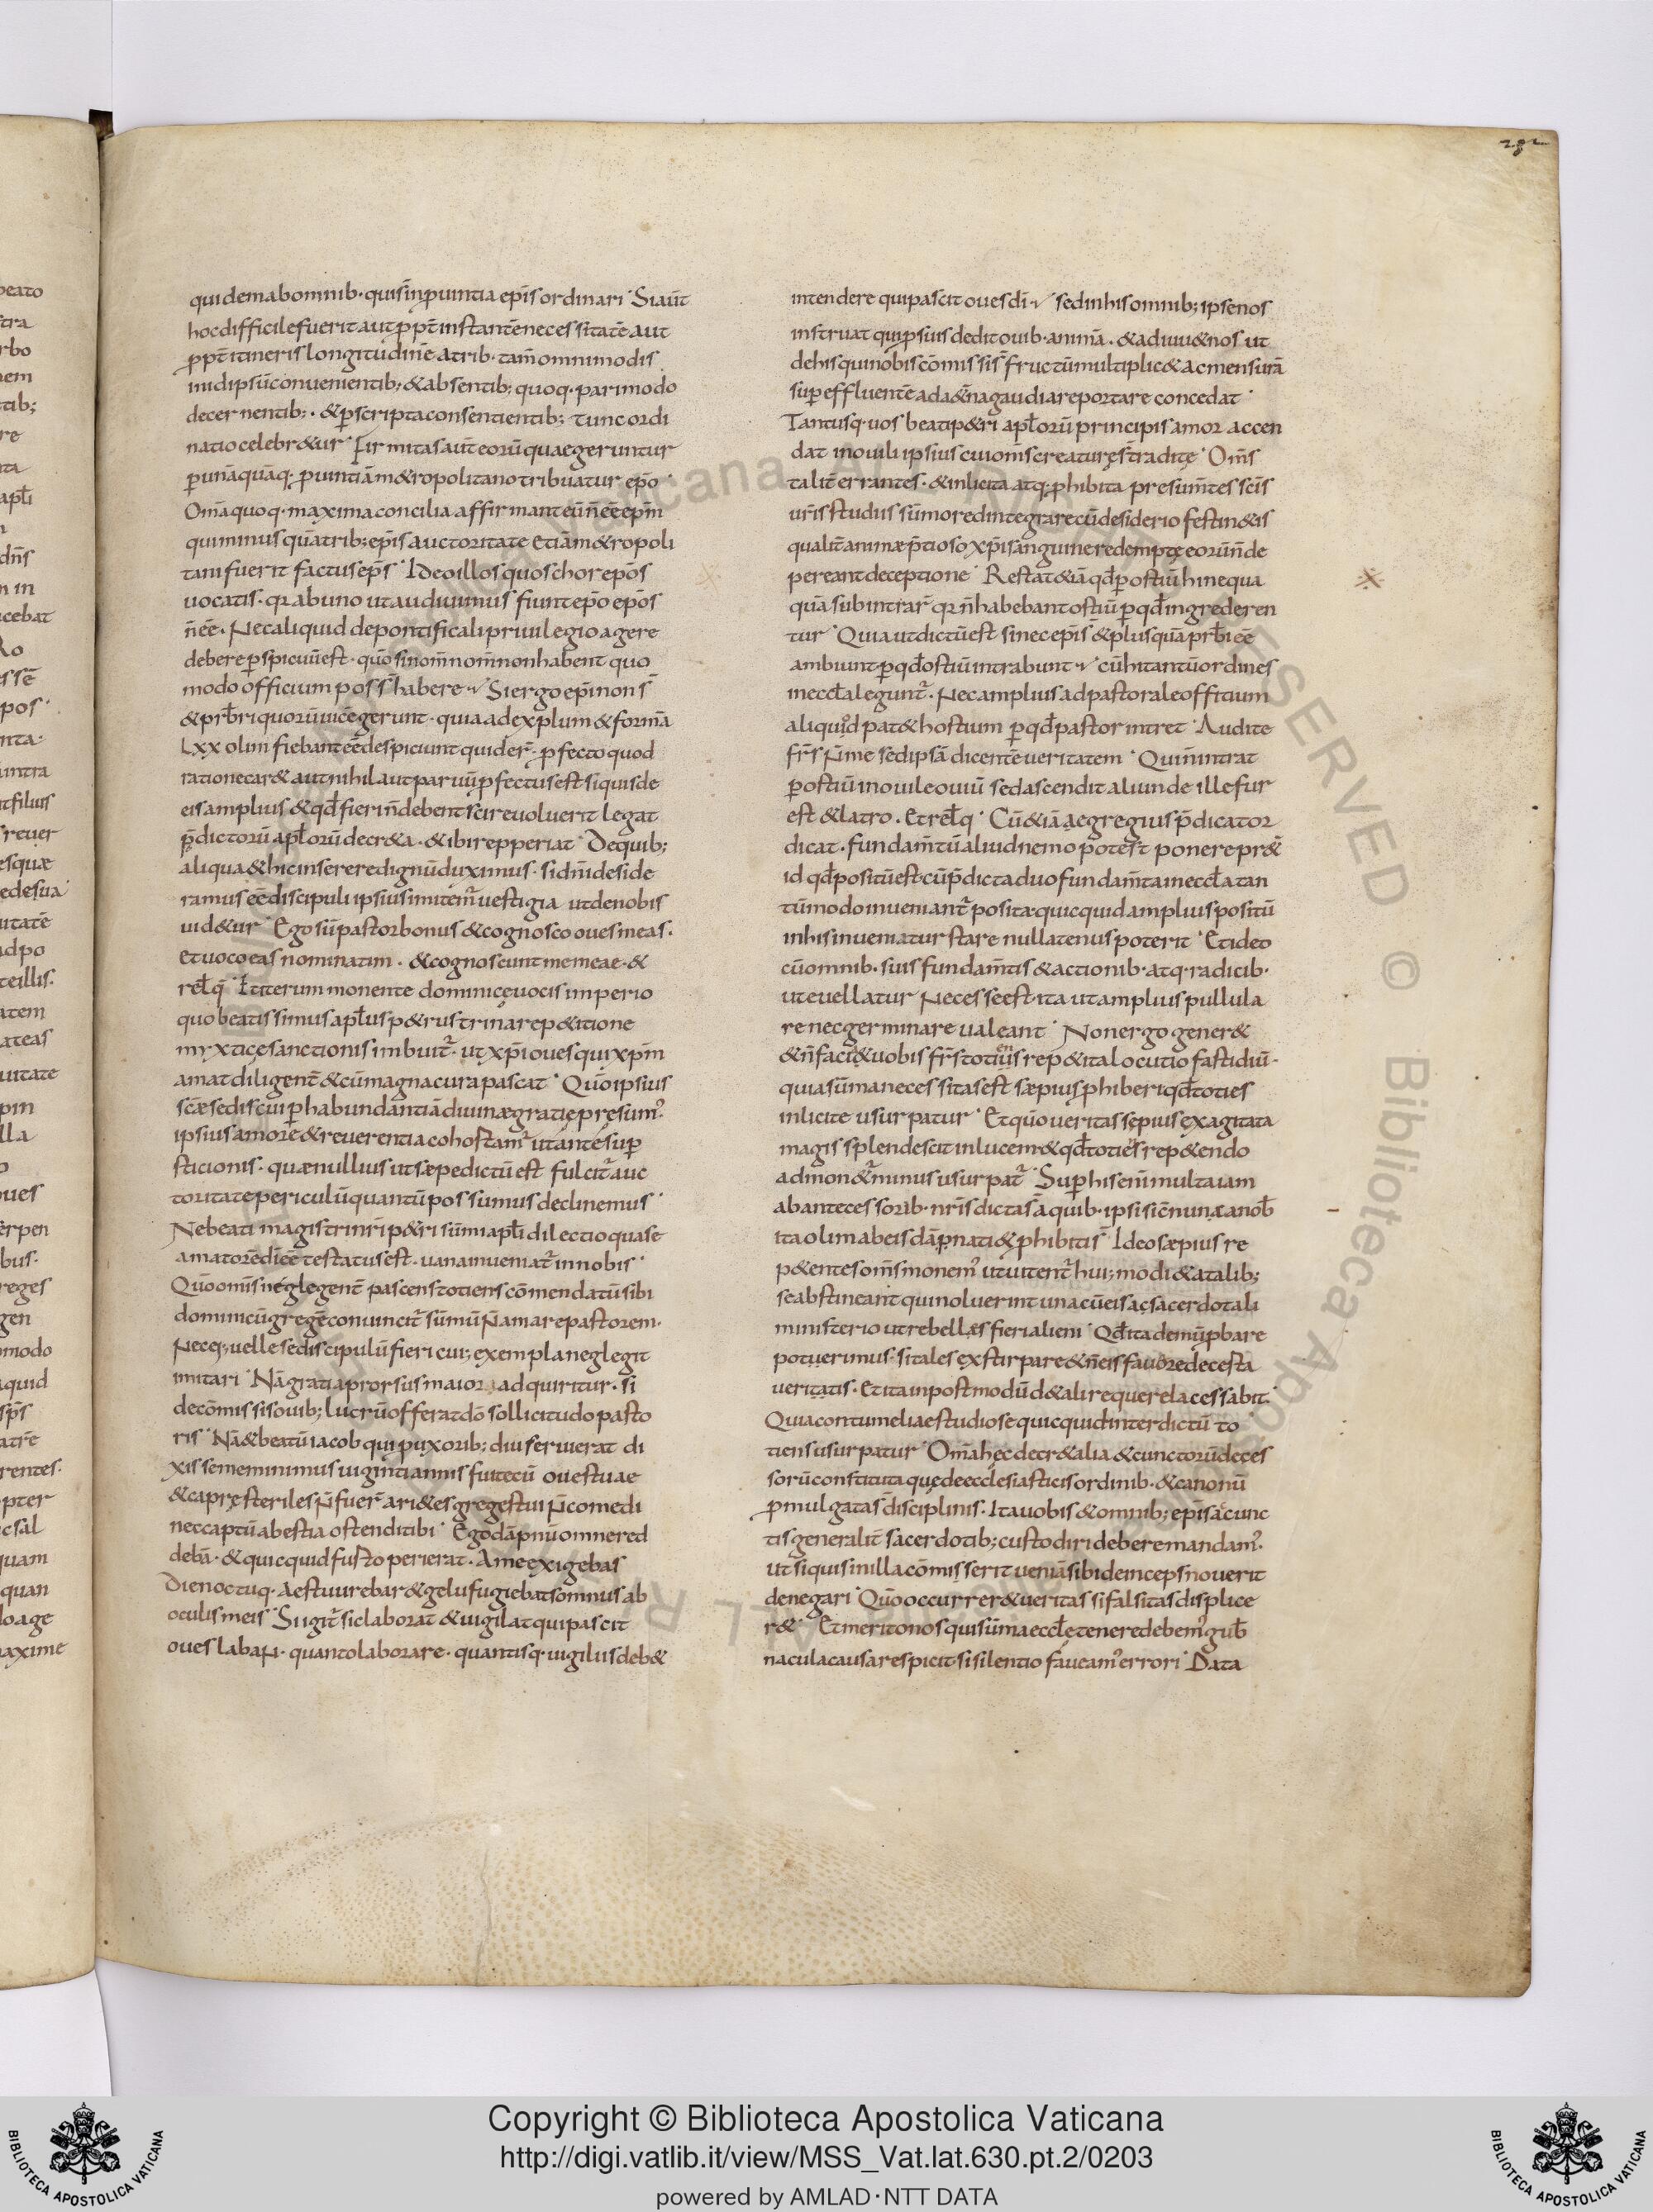 282
quidemabomnib· quisinp̱uintia ep̄is ordinari· Siaūt
hocdifficilefuerit aut p̱pt̄ instantēneces sitatē aut
p̱pt̄ itineris longitudinē atrib· tam̄ omnimodis
inidipsūconuenientib; & absentib; quoq· parimodo
decernentib;· & p̱scripta consentientib; tunc ordi
natio celebr&ur· Firmitas aut̄ eorū quae geruntur
p̱ unāquāq; p̱uintiā m&ropolitano tribuatur ep̄o·
Om̄a quoq· maxima concilia affirmant eū n̄ eē ep̄m
qui minus quā trib; ep̄is auctoritate etiā m&ropoli
tani fuerit factus ep̄s· Ideo illos quos chorep̄os
uocatis· qr ab uno ut audiuimus fiunt ep̄o ep̄os
n̄ eē· Nec aliquid de pontificali priuilegio agere
debere p̱spicuū est· quō si nom̄ nom̄ non habent quo
modo officium poss̄ habere· Si ergo ep̄i non s̄
& prb̄ri quorū uicē gerunt· quia ad explum & formā
Lxx olim fiebant eē despiciunt quider̄· p̱fecto quod
ratione car& aut nihil aut paruū p̱fectus est si quis de
eis amplius & qđ fieri n̄ debent sci reuoluerit legat
p̄dictorū apl̄orū decr&a· & ibi repperiat· De quib;
aliqua & hic inserere dignū duximus· si dn̄i deside
ramus eē discipuli ipsius imitem̄ uestigia ut de nobis
uid&ur· Ego sū pastor bonus & cognosco oues meas·
Et uoco eas nominatim· & cognoscunt me meae· &
rel̄q̄· It iterum monente dominice uocis imperio
quo beatissimus apl̄us p&rus trina rep&itione
myxtice sanctionis imbuit̄· ut xp̄i oues qui xp̄m
amat diligent̄ & cū magna cura pascat· Quō ipsius
scæ sedis cui p̱ habundantiā diuinæ gratię presum̄·
ipsius amore & reuerentia cohostam̄ ut ante sup̱
sticionis· quæ nullius ut sæpe dictū est fulcit̄ auc
toritate periculū quantū possumus declinemus·
Ne beati magistri nr̄i p&ri sūmi apl̄i dilectio quase
amatorē dn̄i eē testatus est· uana inueniat̄ in nobis·
Quō om̄is neglegent̄ pascens totiens cōmendatū sibi
dominicū gregē conuincit̄ sūmū n̄ amare pastorem·
Necq; uelle se discipulū fieri cui; exempla neglegit
imitari· Nā grati aprorsus maior adquiritur· si
de cōmissis ouib; lucrū offerat dō sollicitudo pasto
ris· Nā & beatū iacob qui p̱ uxorib; diu seruierat di
xisse meminimus uiginti annis fui tecū oues tuae
& capre steriles n̄ fuer̄ ari&es gregestui n̄ comedi
nec captū a bestia ostendi tibi· Ego dāpnū omne red
debā· & quicquid fusto perierat· A me exigebas
Die noctuq· aestu urebar & gelu fugiebat somnus ab
oculis meis· Si igit̄ sic laborat & uigilat qui pascit
oues laban· quanto laborare· quantisq· uigiliis deb&
intendere qui pascit oues dī· sed in his omnib; ipse nos
instruat qui p̱ suis dedit ouib· animā· & adiuu& nos ut
de his qui nobis cōmissis s̄ fructū multiplic& ac mensurā
sup̱effluentē ad a&̄na gaudia reportare concedat·
Tantusq· uos beati p&ri apl̄orū principis amor accen
dat in ouili ipsius cui om̄s creaturę s̄ tradite· Om̄s
talit̄ errantes· & inlicita atq; p̱hibita presum̄tes scīs
ur̄is studiis sūmo redintegrare cū desiderio festin&is
qualit̄ animæ p̄tioso xp̄i sanguine redempte eorū n̄ de
pereant deceptione· Restat &iā qđ p̱ ostiū hi nequa
quā subintrar̄ qr n̄ habebant ostiū p̱ qđ ingrederen
tur· Quia ut dictū est sine cep̄is & plusquā prb̄i eē
ambiunt p̱ qđ ostiū intrabunt· cū hi tantū ordines
in eccl̄a legunt̄· Nec amplius ad pastorale offitium
aliquid pat& hostium p̱ qđ pastor intret· Audite
fr̄s n̄ me sed ipsā dicentē ueritatem· Qui n̄ intrat
p̱ ostiū in ouile ouiū sed ascendit aliunde ille fur
est & latro· Et rel̄q· Cū &iā aegregius p̄dicator
dicat· fundam̄tū aliud nemo potest ponere pr&
id qđ positū est· cū p̄dicta duo fundam̄ta in eccl̄a tan
tūmodo inueniant̄ posita· quicquid amplius positū
in his inueniatur stare nullatenus poterit· Et ideo
cū omnib· suis fundam̄tis & actionib· atq· radicib·
ut euellatur necesse est· ita ut amplius pullula
re nec germinare ualeant· Non ergo gener&
& n̄ faci& uobis fr̄s totiens rep&ita locutio fastidiū·
quia sūma necessitas est sæpius p̱hiberi qđ toties
inlicite usurpatur· Et quō ueritas sepius exagitata
magis splendescit in lucem· & qđ toties rep&endo
admon&̄ minus usurpat̄· Sup̱ his eni multa iam
ab antecessorib· nr̄is dicta s̄ a quib· ipsi sic̄ nunc a nob̄
ita olim ab eis dāpnati & p̱hibiti s̄· Ideo sæpius re
p&entes om̄s monem̄ ut uitent̄ hui; modi & a talib;
se abstineant qui noluerint una cū eis ac sacerdotali
ministerio ut rebelles fieri alieni· Qđ ita demū p̱bare
potuerimus· si tales exstirpare & n̄ eis fauore decesta
ueritatis· Et ita in postmodū d& ali re querela cessabit·
Quia contumeliae studiose quicquid interdictū to
tiens usurpatur· Om̄a hęc decr&alia & cunctorū deces
sorū constituta quę de ecclesiasticis ordinib· & canonū
p̱mulgata s̄ disciplinis· Ita uobis & omnib; ep̄is ac cunc
tis generalit̄ sacerdotib; custodiri debere mandam̄·
ut si quis in illa cōmisserit ueniā sibi deinceps nouerit
denegari· Quō occurrer& ueritas si falsitas displice
r&· Et merito nos qui sūma eccl̄ę tenere debem̄ gub̄
nacula causa respicit si silentio faueam̄ errori· Data
Copyright © Biblioteca Apostolica Vaticana
http://digi.vatlib.it/view/MSS_Vat.lat.630.pt.2/0203
powered by AMLAD·NTT DATA
BIBLIOTECA APOSTOLICA VATICANA
BIBLIOTECA APOSTOLICA VATICANA